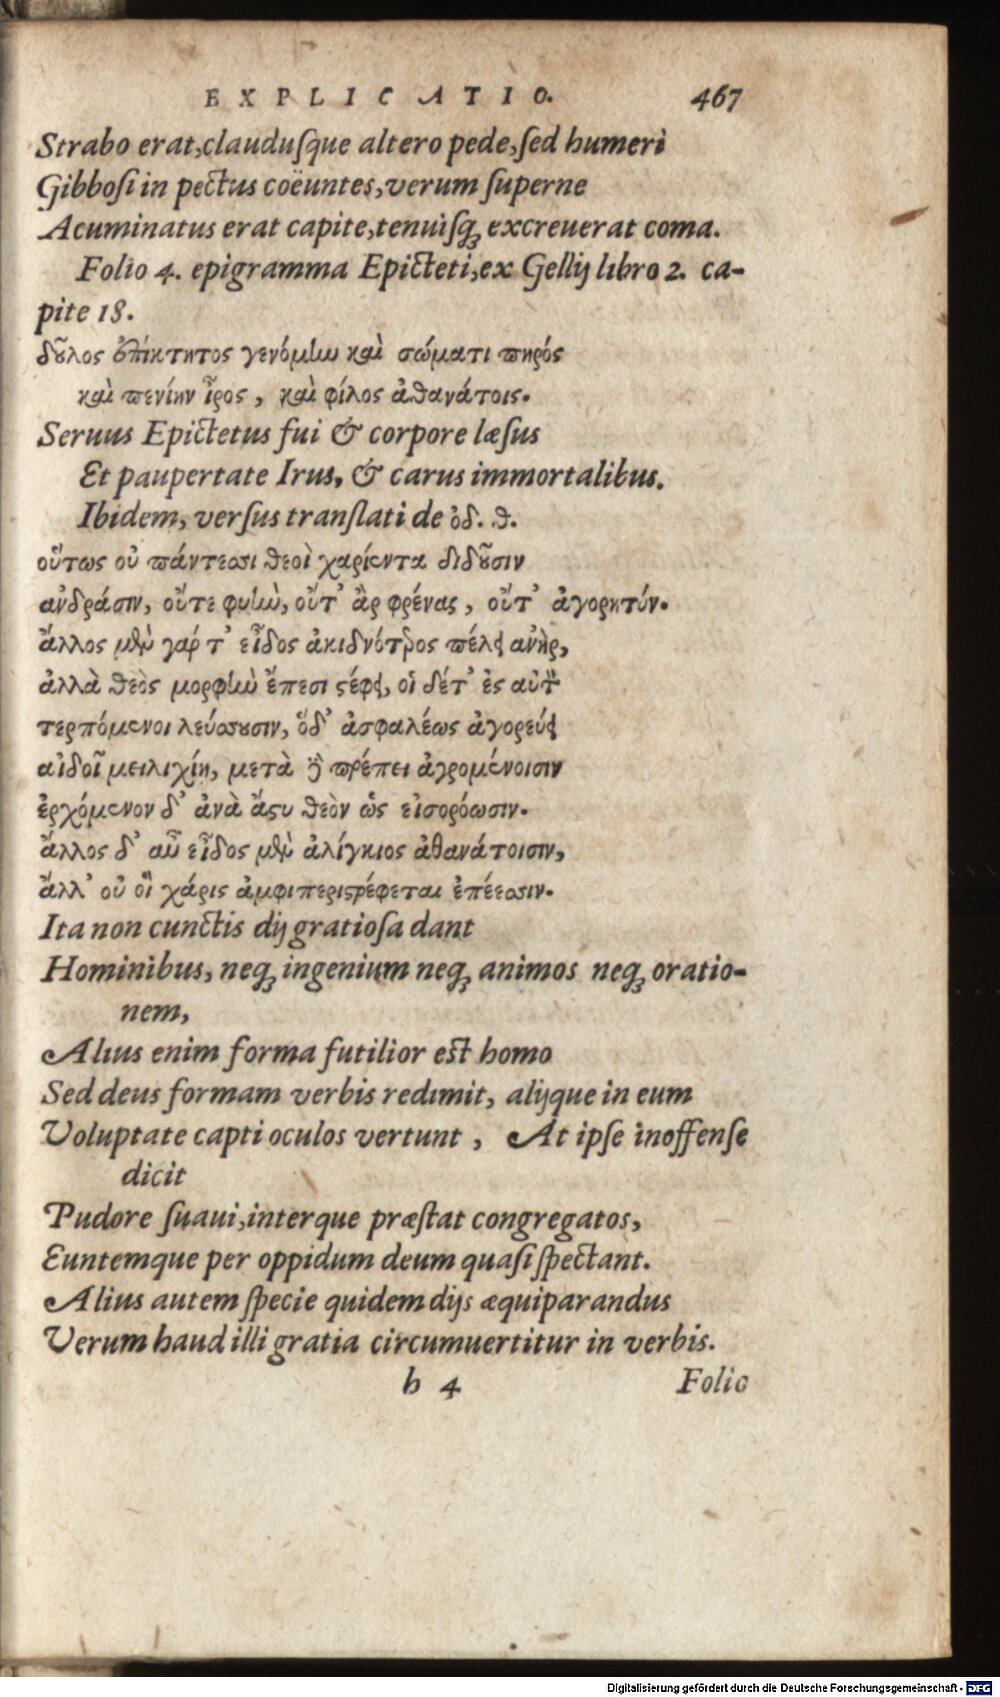 EXPLICATIO. 467
Strabo erat, claudusque altero pede, sed humeri
Gibbosi in pectus coëuntes, verum superne
Acuminatus erat capite, tenuisq; excreuerat coma.
Folio 4. epigramma Epicteti, ex Gellij libro 2. ca-
pite 18.
δοῦλος ἐπίκτητος γενόμην καὶ σώματι πηρός
καὶ πενίην ἶρος, καὶ φίλος ἀθανάτοις.
Seruus Epictetus fui & corpore læsus
Et paupertate Irus, & carus immortalibus.
Ibidem, versus translati de ὀδ. θ.
οὕτως οὐ πάντεσσι θεοὶ χαρίεντα διδοῦσιν
ἀνδράσιν, οὔτε φυὴν, οὔτ' ἂρ φρένας, οὔτ' ἀγορητύν.
ἄλλος μὲν γάρ τ' εἶδος ἀκιδνότερος πέλει ἀνὴρ,
ἀλλὰ θεὸς μορφὴν ἔπεσι στέφει, οἱ δέτ' ἐς αὐτὸν
τερπόμενοι λεύσσουσιν, ὅδ' ἀσφαλέως ἀγορεύει
αἰδοῖ μειλιχίῃ, μετὰ δὲ πρέπει ἀγρομένοισιν
ἐρχόμενον δ' ἀνὰ ἄστυ θεὸν ὡς εἰσορόωσιν.
ἄλλος δ' αὖ εἶδος μὲν ἀλίγκιος ἀθανάτοισιν,
ἄλλ' οὐ οἳ χάρις ἀμφιπεριστρέφεται ἐπέεσσιν.
Ita non cunctis dij gratiosa dant
Hominibus, neq; ingenium neq; animos neq; oratio-
nem,
Alius enim forma futilior est homo
Sed deus formam verbis redimit, alijque in eum
Voluptate capti oculos vertunt, At ipse inoffense
dicit
Pudore suaui, interque præstat congregatos,
Euntemque per oppidum deum quasi spectant.
Alius autem specie quidem dijs æquiparandus
Verum haud illi gratia circumuertitur in verbis.
h 4 Folio
Digitalisierung gefördert durch die Deutsche Forschungsgemeinschaft - DFG